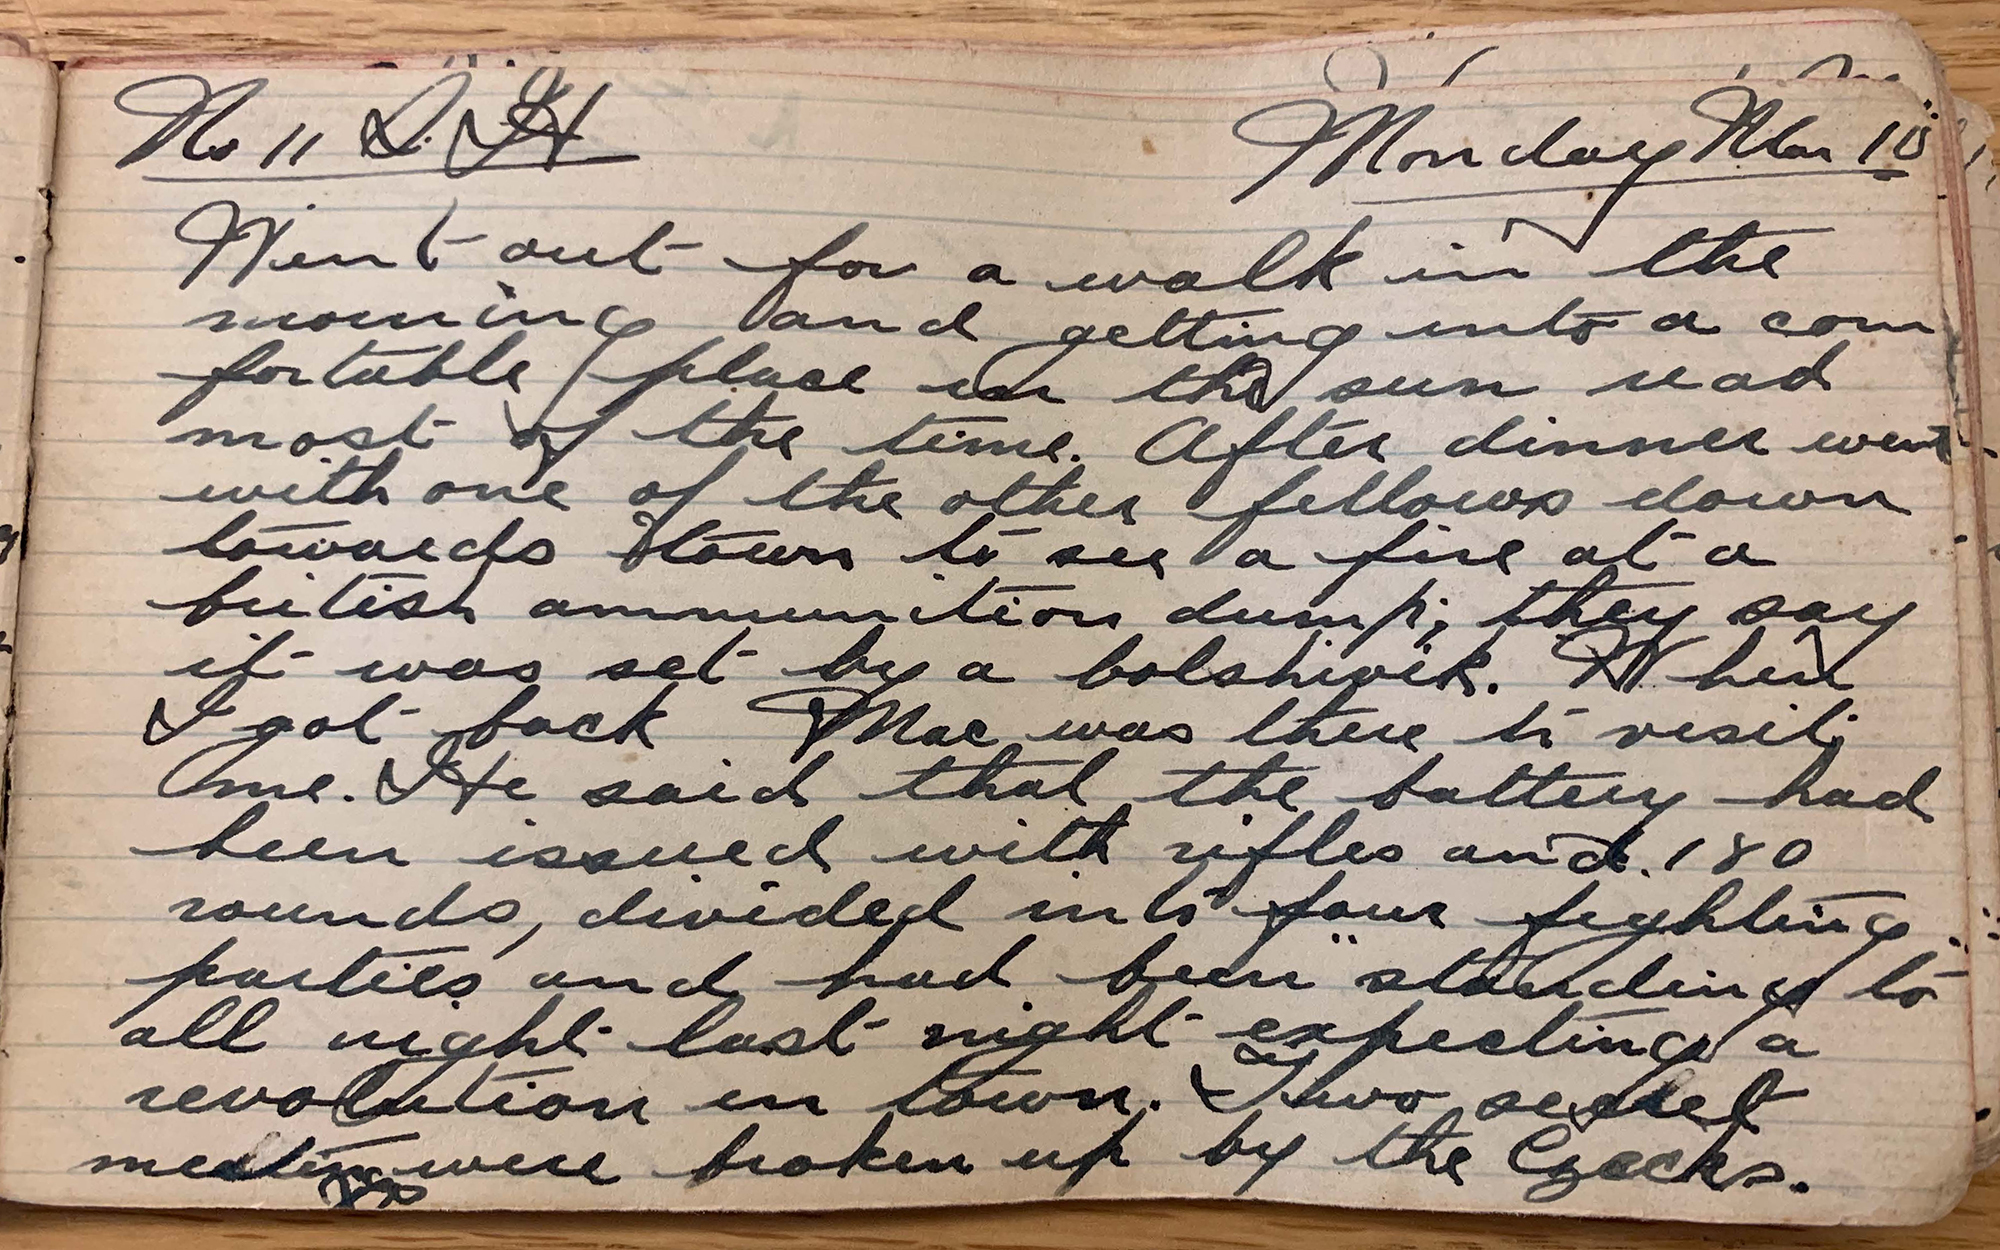 No 11 S.H Monday Mar 10
Went out for a walk in the
morning and getting into a com
fortable place in the sun read
most of the time. After dinner went
with one of the other fellows down
towards town to see a fire at a
british ammunition dump; they say
it was set by a bolshivik. When
I got back Mac was there to visit
me. He said that the battery had
been issued with rifles and 180
rounds, divided into four fighting
parties and had been standing to
all night last night expecting a
revolution in town. Two secret
meetings were broken up by the Czecks.